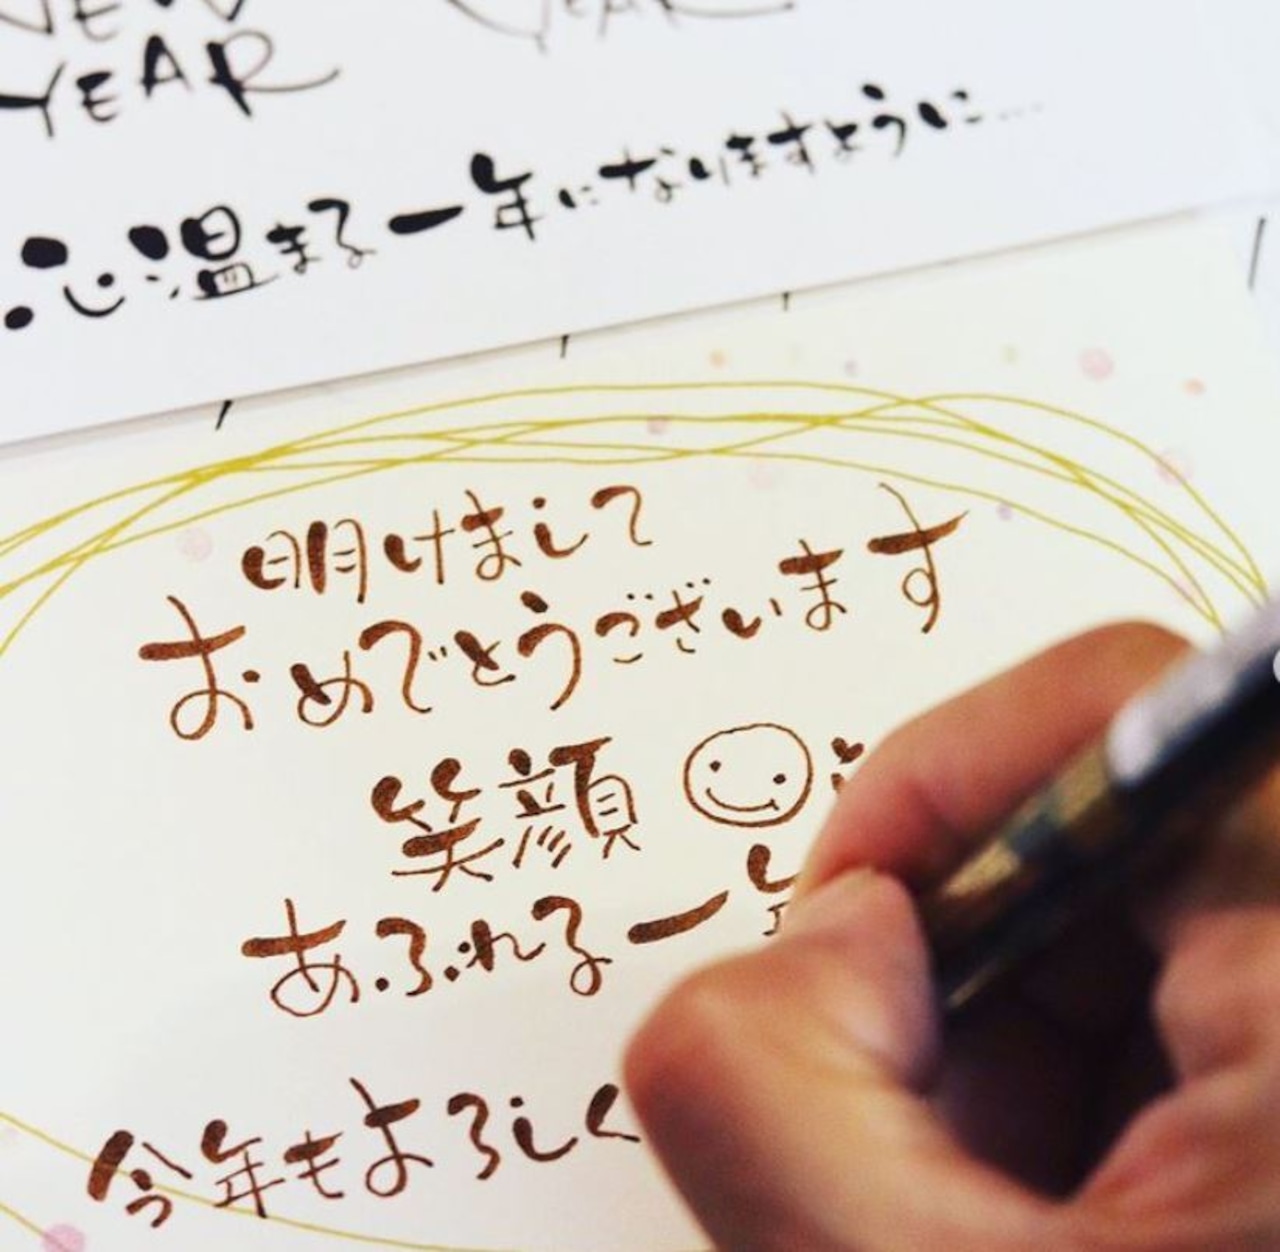 NEW
YEAR
YEAR
心温まる一年になりますように...
明けまして
おめでとうございます
笑顔
あふれる一
今年もよろしく